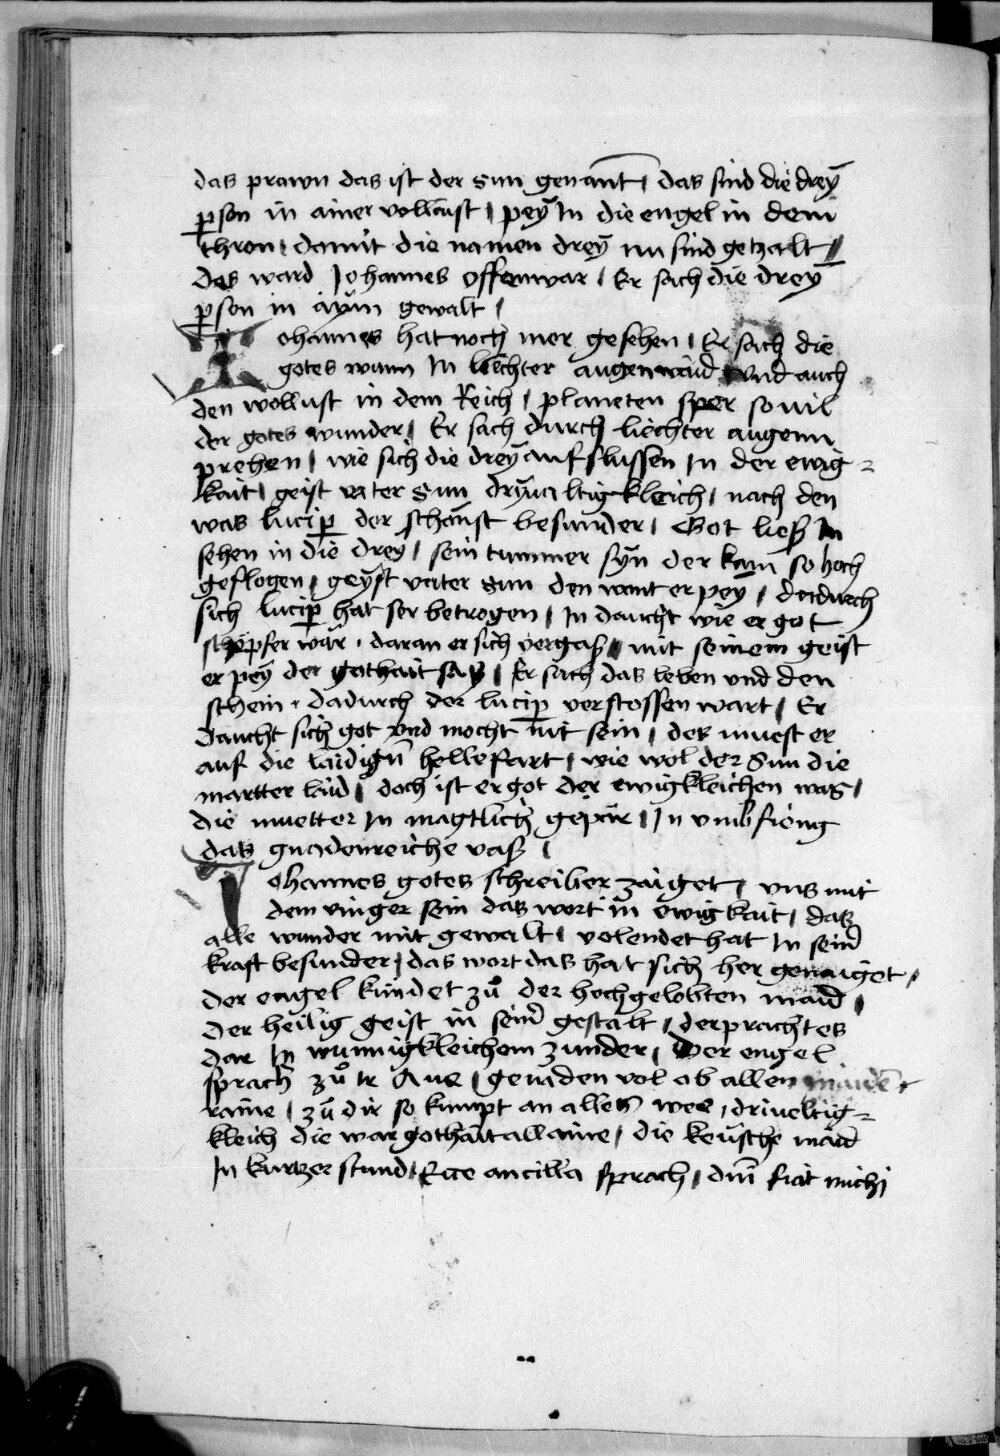 das prawn das ist der Sun genant / das sind die dreÿ
p̱son in ainer vollaist / peÿ In die engel in dem
thron / damit die namen dreÿ nu sind getzalt //
das ward Johannes offenwar / Er sach die dreÿ
p̱son in aÿnn gewalt /
Johannes hat noch mer gesehen / Er sach die
gotes wunn In liechter augenwaid / vnd auch
den wollust in dem Reich / planeten sper souil
der gotes wunder / Er sach durch liechter augenn
prehen / wie sich die dreÿ aufslussen In der ewig=
kait / geist vater Sun drÿualtigkleich / nach den
was lucip̱ der schanst besunder / Got lies In
sehen in die dreÿ / sein tummer sÿn der kam so hoch
geflogen / geÿst vater Sun den want er peÿ / dadurch
sich lucip̱ hat ser betrogen / In daucht wie er got
schöpfer wär / daran er sich vergaß / mit seinem geist
er peÿ der gothait saß / Er sach das leben vnd den
schein / dadurch der lucip̱ verstossen wart / Er
daucht sich got vnd mocht nit sein / des muest er
auf die laidign̄ hellefart / wie wol der Sun die
martter laid / doch ist er got der ewigkleichen was /
die muetter In magtlicher gepür / In vmbfieng
das gnadenreiche vaß /
Johannes gotes schreiber zaiget / vns mit
dem vinger sein das wort in ewigkait / das
alle wunder mit gewalt / volendet hat In seinr
kraft besunder / das wort das hat sich her genaiget /
der engel kundet zů der hochgelobten maid /
der heilig geist in seinr gestalt / der pracht es
dar In wunnigkleichem zunder / Der engel
sprach zů ir Aue / genaden vol ob allen maiden /
raine / zů dir so kumpt an alles wee / driueltig=
kleich die war gothait allaine / die keusche maid
In kurtzer stund / Ecce ancilla sprach / dn̄i fiat michi